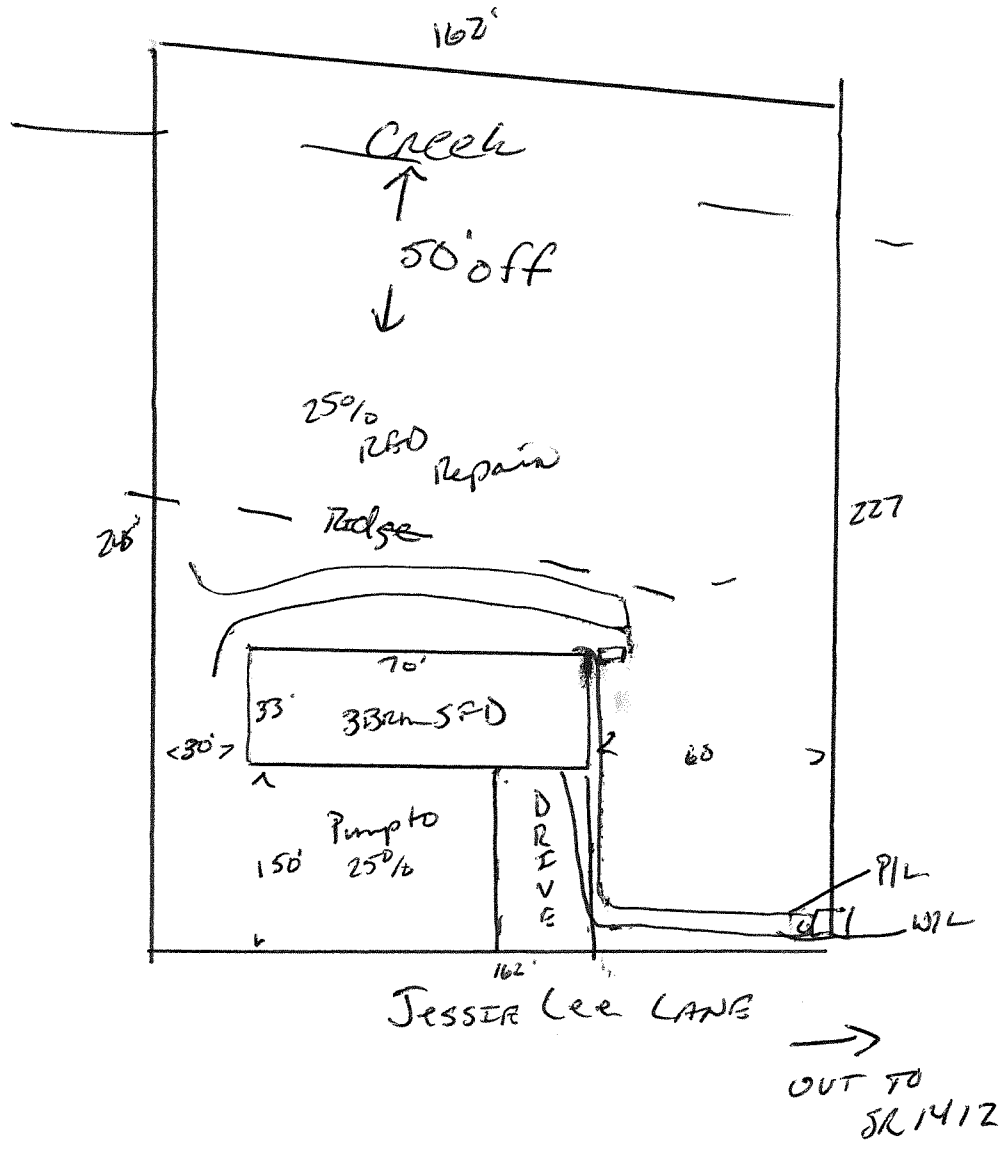 162'
Creek
50' off
25%
RED
Repair
Ridge
227
70'
33'
3BRm SFD
<30'>
60
Pump to
150' 25%
DRIVE
P/L
W/L
162'
Jessie Lee LANE
OUT TO
SR 1412